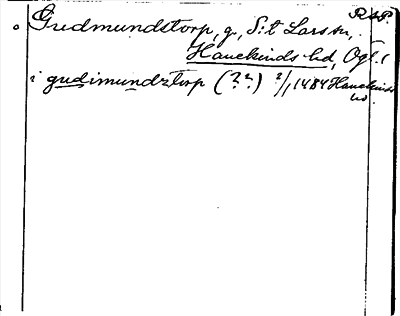 Gudmundstorp, g., S:t Lars sn,
Hanekinds hd, Ögl.
i gudimundztorp (??) 2/1 1484 Hanekinds
hd.